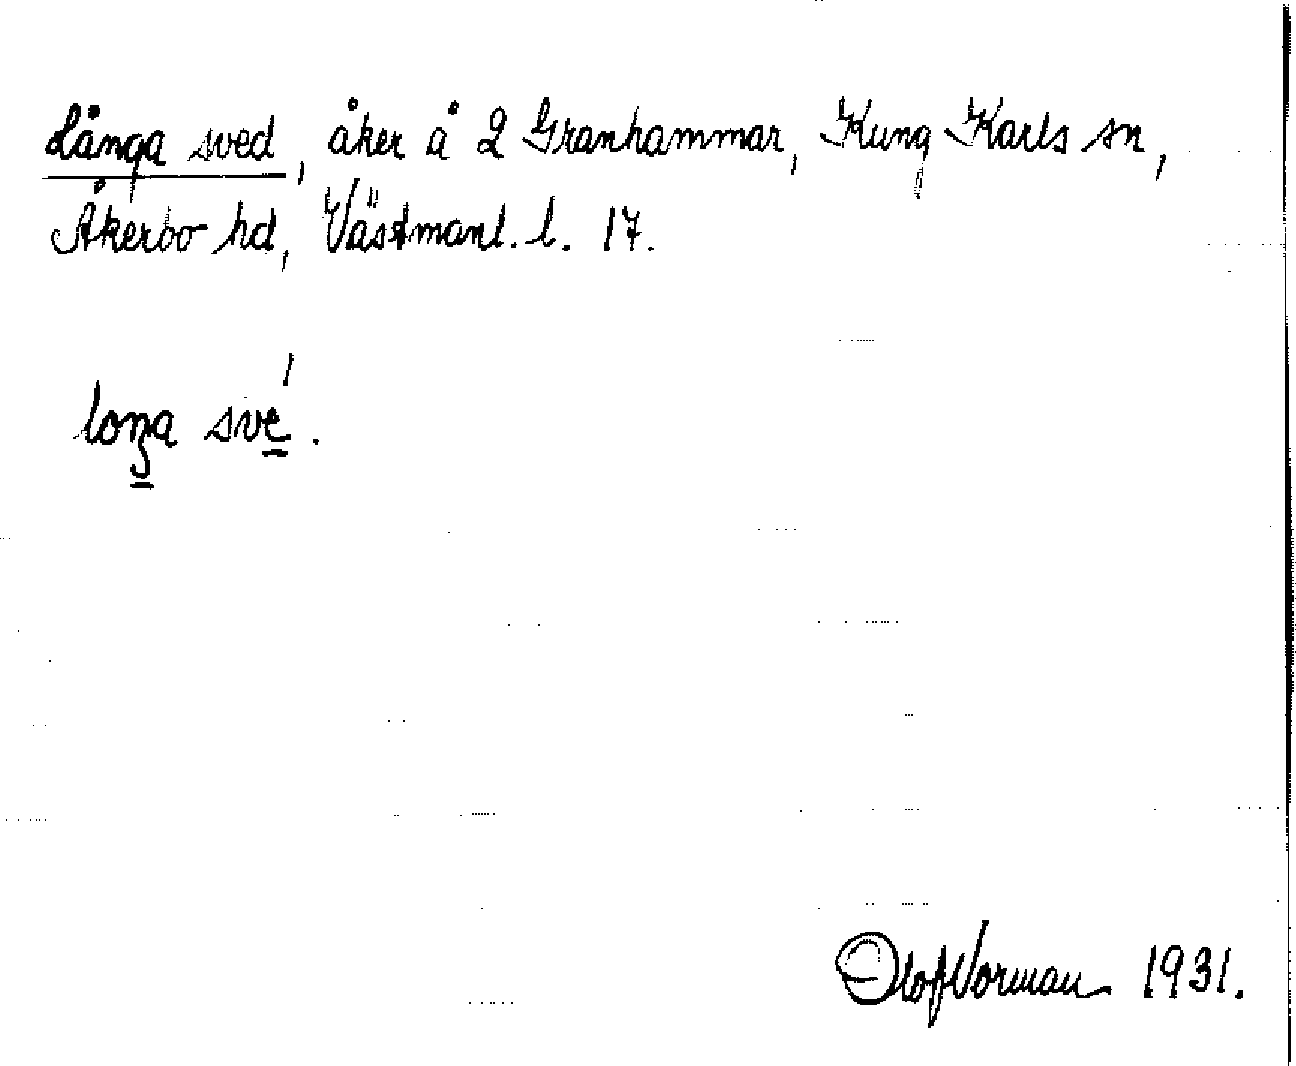 Långa sved, åker å 2 Granhammar, Kung Karls sn,
Åkerbo hd, Västmanl. l. 17.
loŋa sve̱ ́.
Olof Norman 1931.